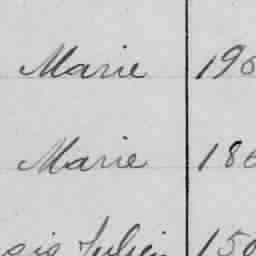 Marie 190
Marie 186
sis Julien 150